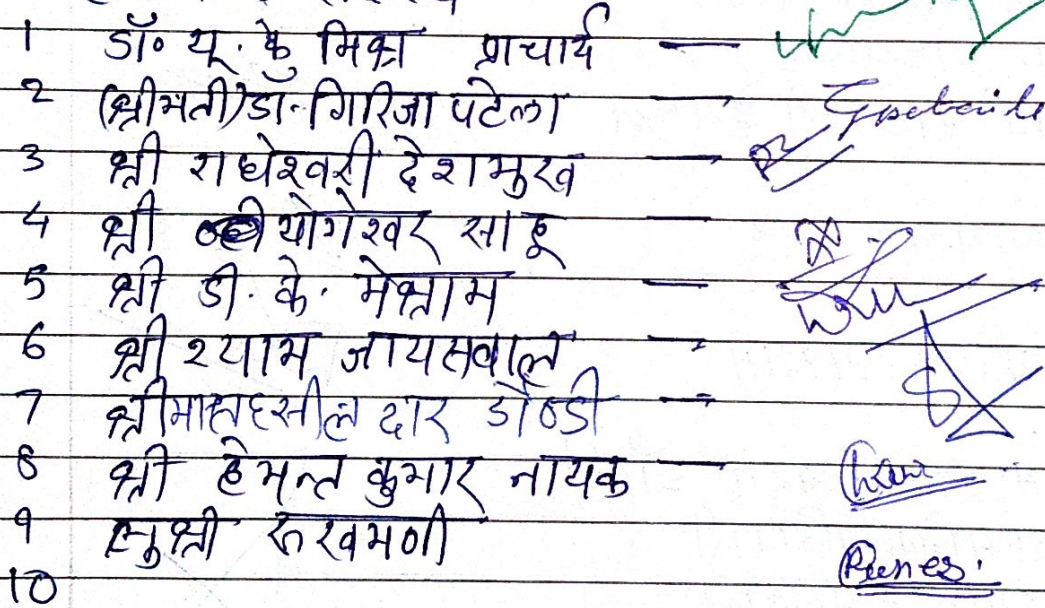 1 डॉ० यू. के मिश्रा प्राचार्य —
2 (श्रीमती) डॉ. गिरिजा पटेला —
3 श्री राधेश्वरी देशमुख —
4 श्री योगेश्वर साहू —
5 श्री डी. के. मेश्राम —
6 श्री श्याम जायसवाल —
7 श्रीमान तहसीलदार डौण्डी —
8 श्री हेमन्त कुमार नायक —
9 सुश्री रूखमणी
10